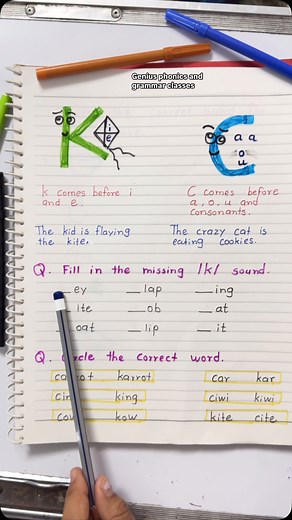 Genius phonics and
grammar classes
K i e
C a a o u
k comes before i
and e.
C comes before
a, o, u and
consonants.
The kid is flaying
the kite.
The crazy cat is
eating cookies.
Q. Fill in the missing /k/ sound.
_ey _lap _ing
ite _ob _at
oat _lip _it
Q. Circle the correct word.
karrot car kar
king ciwi kiwi
kow kite cite